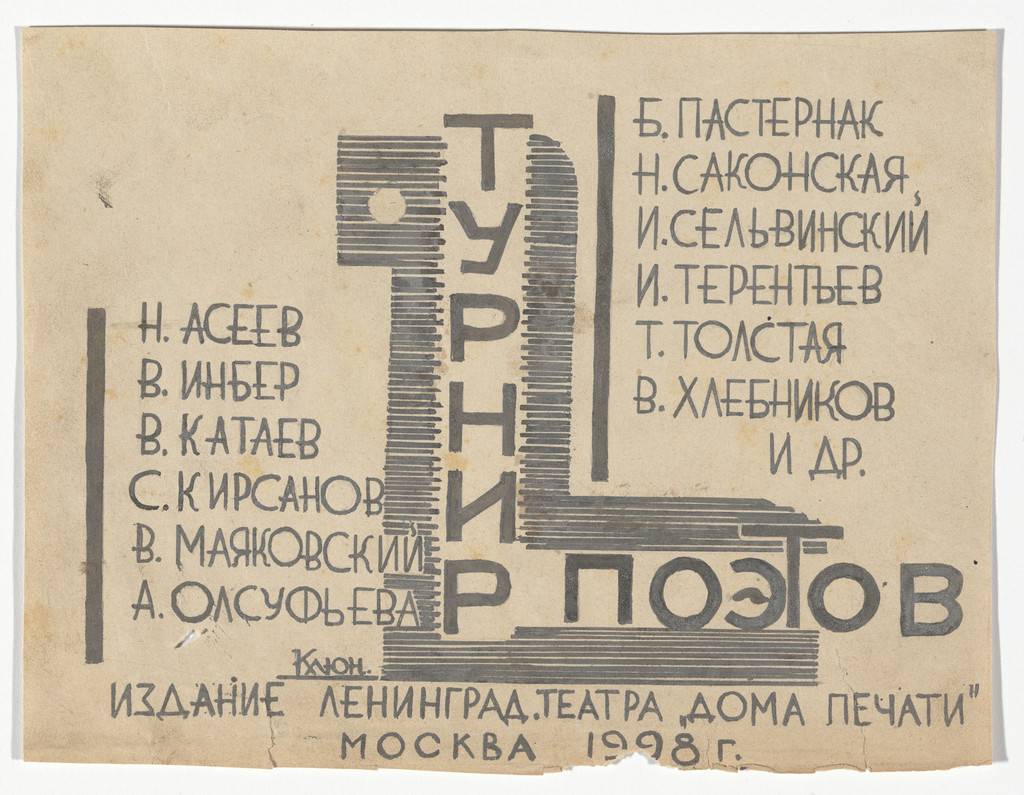 ТУРНИР
ПОЭТОВ
Н. АСЕЕВ
В. ИНБЕР
В. КАТАЕВ
С. КИРСАНОВ
В. МАЯКОВСКИЙ
А. ОЛСУФЬЕВА
Б. ПАСТЕРНАК
Н. САКОНСКАЯ
И. СЕЛЬВИНСКИЙ
И. ТЕРЕНТЬЕВ
Т. ТОЛСТАЯ
В. ХЛЕБНИКОВ
И ДР.
Клюн.
ИЗДАНИЕ ЛЕНИНГРАД. ТЕАТРА „ДОМА ПЕЧАТИ"
МОСКВА 1998 г.